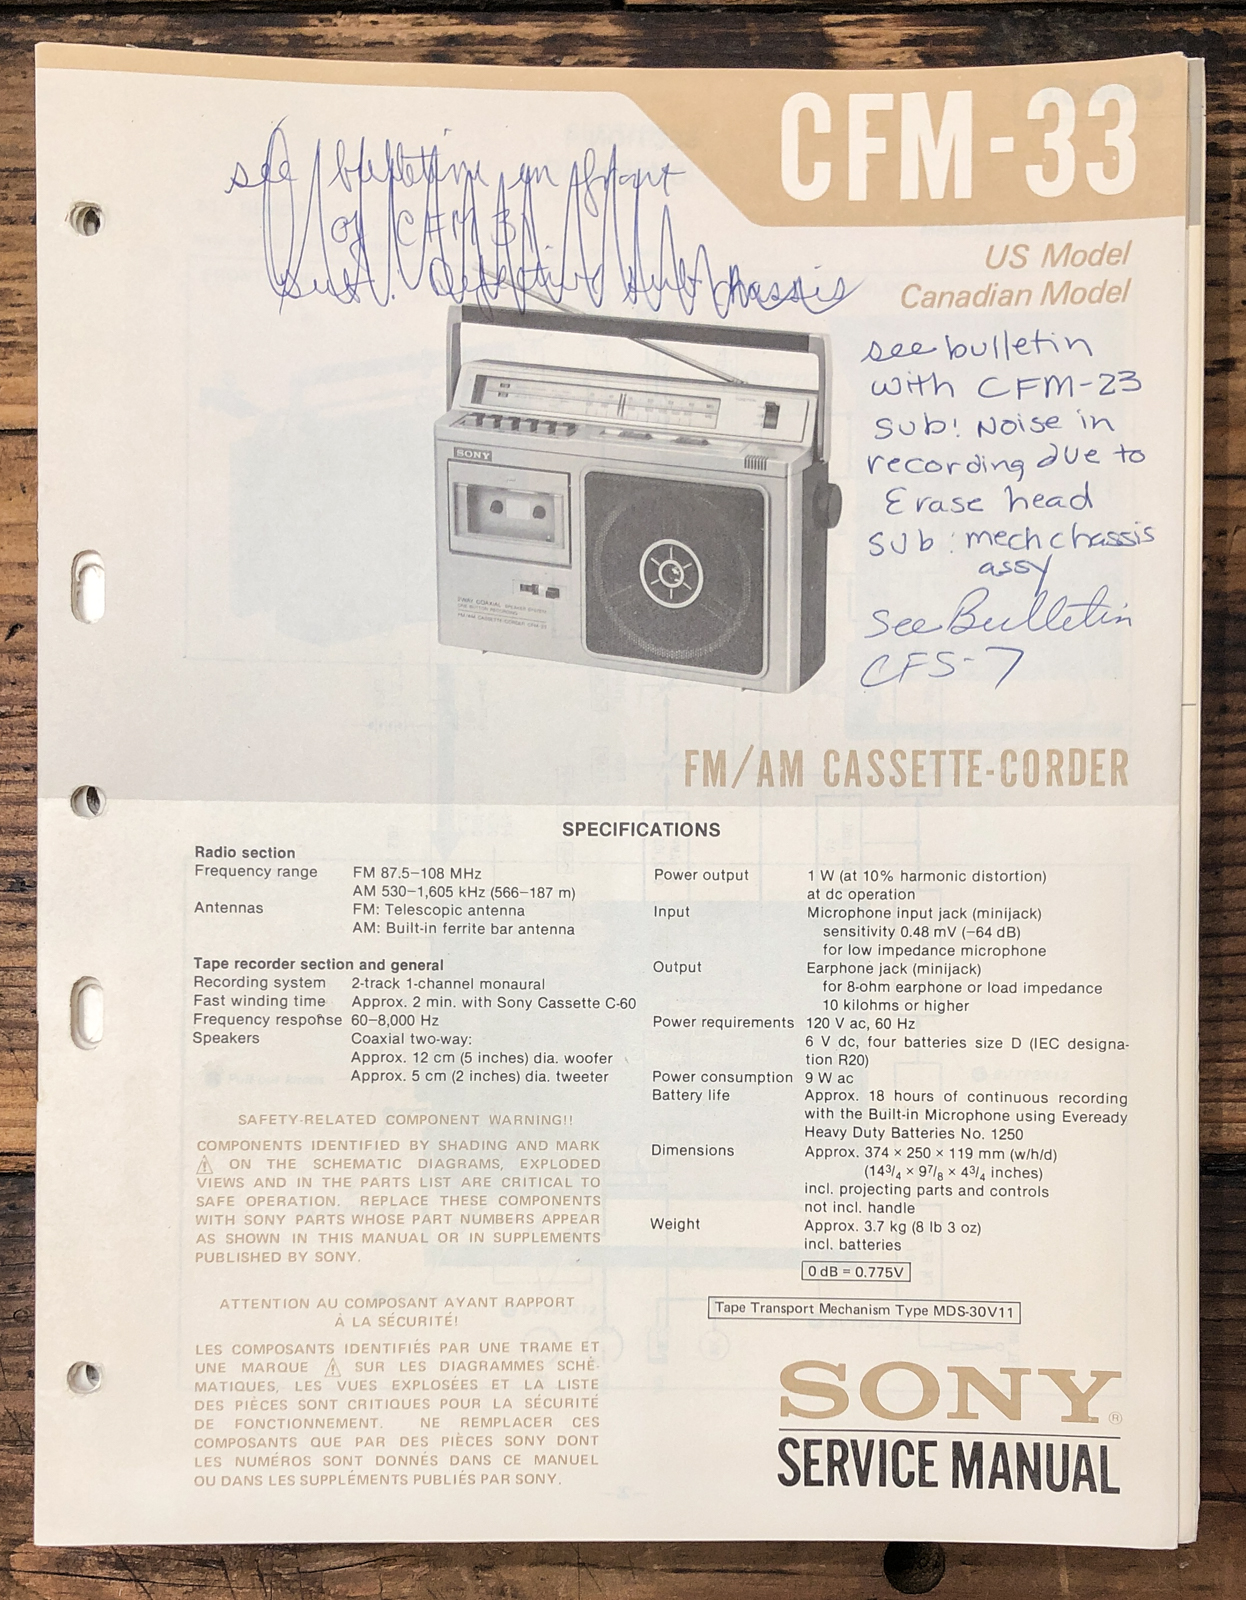 CFM-33
US Model
Canadian Model
see bulletin in front
of CFM 31
Defective sub chassis
see bulletin
with CFM-23
sub: Noise in
recording due to
Erase head
sub: mech chassis
assy
See Bulletin
CFS-7
SONY
2WAY COAXIAL SPEAKER SYSTEM
ONE BUTTON RECORDING
FM/AM CASSETTE-CORDER CFM-33
FM/AM CASSETTE-CORDER
SPECIFICATIONS
Radio section
Frequency range FM 87.5–108 MHz
AM 530–1,605 kHz (566–187 m)
Antennas FM: Telescopic antenna
AM: Built-in ferrite bar antenna
Tape recorder section and general
Recording system 2-track 1-channel monaural
Fast winding time Approx. 2 min. with Sony Cassette C-60
Frequency response 60–8,000 Hz
Speakers Coaxial two-way:
Approx. 12 cm (5 inches) dia. woofer
Approx. 5 cm (2 inches) dia. tweeter
SAFETY-RELATED COMPONENT WARNING!!
COMPONENTS IDENTIFIED BY SHADING AND MARK
⚠ ON THE SCHEMATIC DIAGRAMS, EXPLODED
VIEWS AND IN THE PARTS LIST ARE CRITICAL TO
SAFE OPERATION. REPLACE THESE COMPONENTS
WITH SONY PARTS WHOSE PART NUMBERS APPEAR
AS SHOWN IN THIS MANUAL OR IN SUPPLEMENTS
PUBLISHED BY SONY.
ATTENTION AU COMPOSANT AYANT RAPPORT
À LA SÉCURITÉ!
LES COMPOSANTS IDENTIFIÉS PAR UNE TRAME ET
UNE MARQUE ⚠ SUR LES DIAGRAMMES SCHÉ-
MATIQUES, LES VUES EXPLOSÉES ET LA LISTE
DES PIÈCES SONT CRITIQUES POUR LA SÉCURITÉ
DE FONCTIONNEMENT. NE REMPLACER CES
COMPOSANTS QUE PAR DES PIÈCES SONY DONT
LES NUMÉROS SONT DONNÉS DANS CE MANUEL
OU DANS LES SUPPLÉMENTS PUBLIÉS PAR SONY.
Power output 1 W (at 10% harmonic distortion)
at dc operation
Input Microphone input jack (minijack)
sensitivity 0.48 mV (–64 dB)
for low impedance microphone
Output Earphone jack (minijack)
for 8-ohm earphone or load impedance
10 kilohms or higher
Power requirements 120 V ac, 60 Hz
6 V dc, four batteries size D (IEC designa-
tion R20)
Power consumption 9 W ac
Battery life Approx. 18 hours of continuous recording
with the Built-in Microphone using Eveready
Heavy Duty Batteries No. 1250
Dimensions Approx. 374 × 250 × 119 mm (w/h/d)
(14 3/4 × 9 7/8 × 4 3/4 inches)
incl. projecting parts and controls
not incl. handle
Weight Approx. 3.7 kg (8 lb 3 oz)
incl. batteries
0 dB = 0.775V
Tape Transport Mechanism Type MDS-30V11
SONY®
SERVICE MANUAL